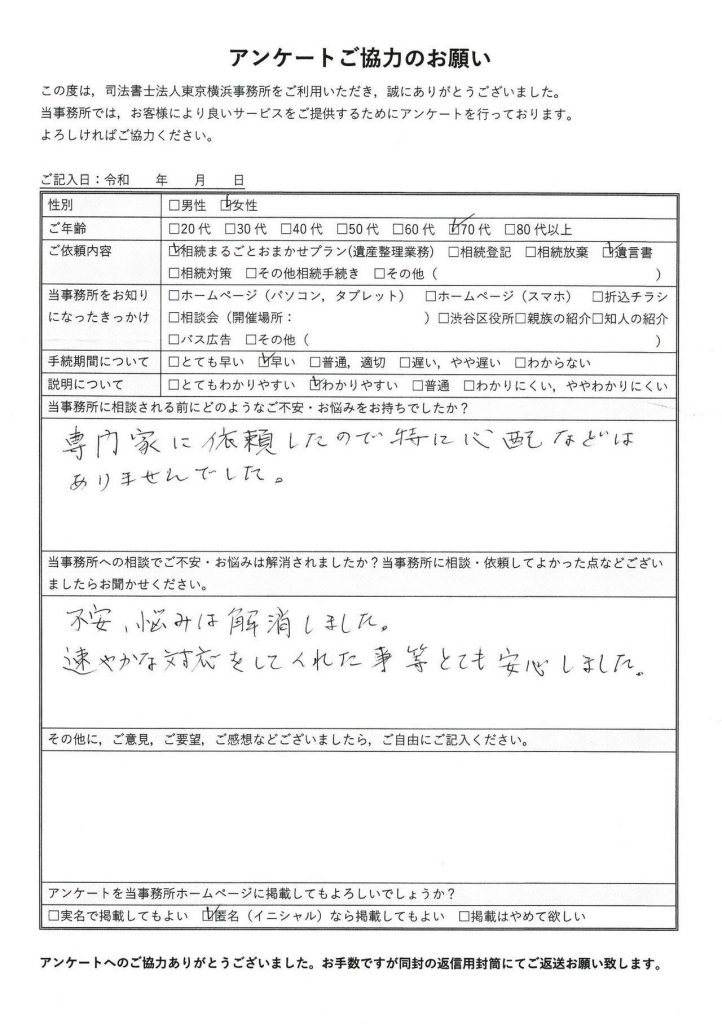 アンケートご協力のお願い
この度は，司法書士法人東京横浜事務所をご利用いただき，誠にありがとうございました。
当事務所では，お客様により良いサービスをご提供するためにアンケートを行っております。
よろしければご協力ください。
ご記入日：令和　　年　　月　　日
性別 □男性 ☑女性
ご年齢 □20代 □30代 □40代 □50代 □60代 ☑70代 □80代以上
ご依頼内容 ☑相続まるごとおまかせプラン(遺産整理業務) □相続登記 □相続放棄 ☑遺言書
□相続対策 □その他相続手続き □その他（　　　　）
当事務所をお知り □ホームページ（パソコン，タブレット） □ホームページ（スマホ） □折込チラシ
になったきっかけ □相談会（開催場所：　　　　）□渋谷区役所□親族の紹介□知人の紹介
□バス広告 □その他（　　　　）
手続期間について □とても早い ☑早い □普通，適切 □遅い，やや遅い □わからない
説明について □とてもわかりやすい ☑わかりやすい □普通 □わかりにくい，ややわかりにくい
当事務所に相談される前にどのようなご不安・お悩みをお持ちでしたか？
専門家に依頼したので特に心配などは
ありませんでした。
当事務所への相談でご不安・お悩みは解消されましたか？当事務所に相談・依頼してよかった点などござい
ましたらお聞かせください。
不安、悩みは解消しました。
速やかな対応をしてくれた事等とても安心しました。
その他に，ご意見，ご要望，ご感想などございましたら，ご自由にご記入ください。
アンケートを当事務所ホームページに掲載してもよろしいでしょうか？
□実名で掲載してもよい ☑匿名（イニシャル）なら掲載してもよい □掲載はやめて欲しい
アンケートへのご協力ありがとうございました。お手数ですが同封の返信用封筒にてご返送お願い致します。